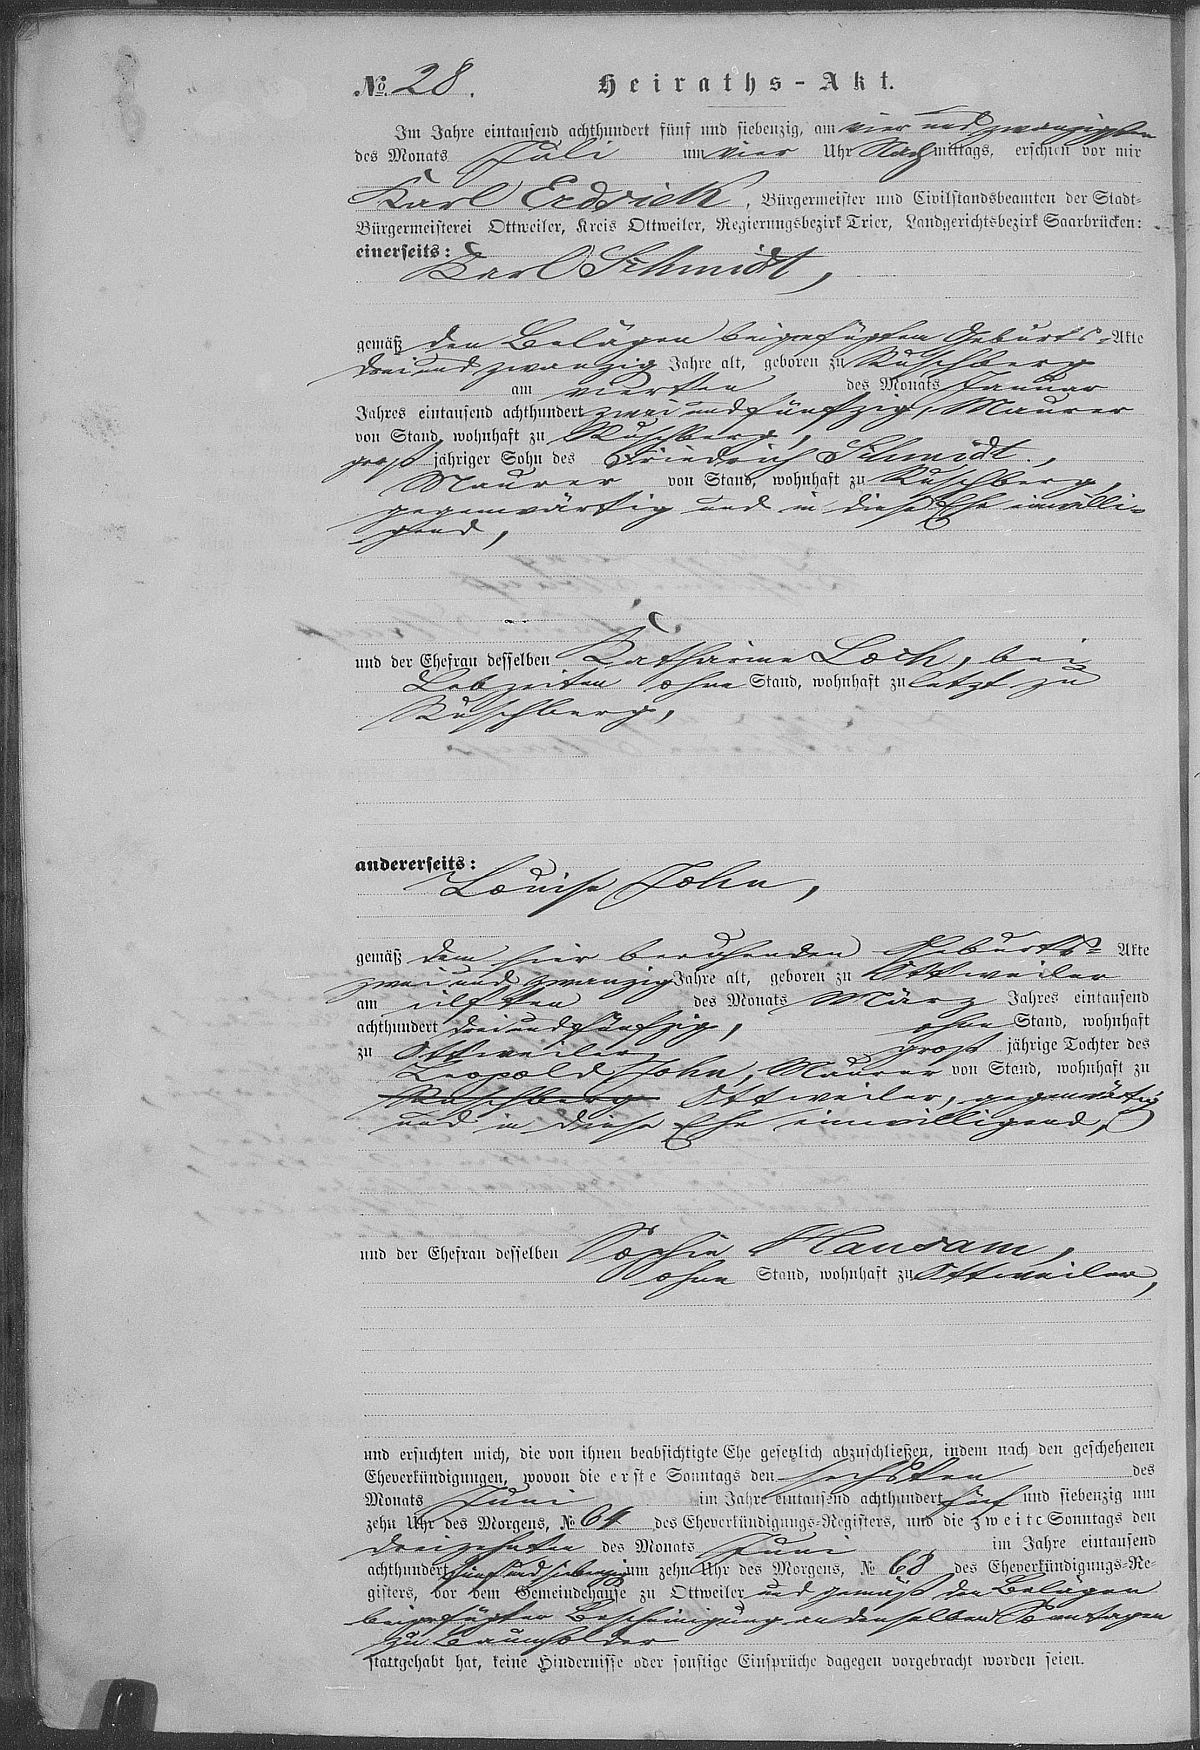 № 28. Heiraths-Akt.
Im Jahre eintausend achthundert fünf und siebenzig, am vier und zwanzigsten
des Monats Juli um vier Uhr Nachmittags, erschien vor mir
Karl, Bürgermeister und Civilstandsbeamten der Stadt-
Bürgermeisterei Ottweiler, Kreis Ottweiler, Regierungsbezirk Trier, Landgerichtsbezirk Saarbrücken:
einerseits:
Karl Schmidt,
gemäß den Belägen beigefügten Geburts-Akte
drei und zwanzig Jahre alt, geboren zu Ruschberg
am vierten des Monats Januar
Jahres eintausend achthundert zwei und fünfzig, Maurer
von Stand, wohnhaft zu Ruschberg,
großjähriger Sohn des Friedrich Schmidt,
Maurer von Stand, wohnhaft zu Ruschberg,
gegenwärtig und in diese Ehe einwilli-
gend,
und der Ehefrau desselben Katharine Loch, bei
Lebzeiten ohne Stand, wohnhaft zuletzt zu
Ruschberg,
andererseits:
Louise John,
gemäß dem hier beruhenden Geburts-Akte
zwei und zwanzig Jahre alt, geboren zu Ottweiler
am eilften des Monats März Jahres eintausend
achthundert drei und fünfzig, ohne Stand, wohnhaft
zu Ottweiler großjährige Tochter des
Leopold John, Maurer von Stand, wohnhaft zu
Ruschberg Ottweiler, gegenwärtig
und in diese Ehe einwilligend,
und der Ehefrau desselben Sophie
ohne Stand, wohnhaft zu Ottweiler,
und ersuchten mich, die von ihnen beabsichtigte Ehe gesetzlich abzuschließen, indem nach den geschehenen
Eheverkündigungen, wovon die erste Sonntags den sechsten des
Monats Juni im Jahre eintausend achthundert fünf und siebenzig um
zehn Uhr des Morgens, № 64 des Eheverkündigungs-Registers, und die zweite Sonntags den
dreizehnten des Monats Juni im Jahre eintausend
achthundert fünf und siebenzig um zehn Uhr des Morgens, № 68 des Eheverkündigungs-Re-
gisters, vor dem Gemeindehause zu Ottweiler und gemäß den Belägen
beigefügter Bescheinigung an denselben Sonntagen
zu Baumholder
stattgehabt hat, keine Hindernisse oder sonstige Einsprüche dagegen vorgebracht worden seien.